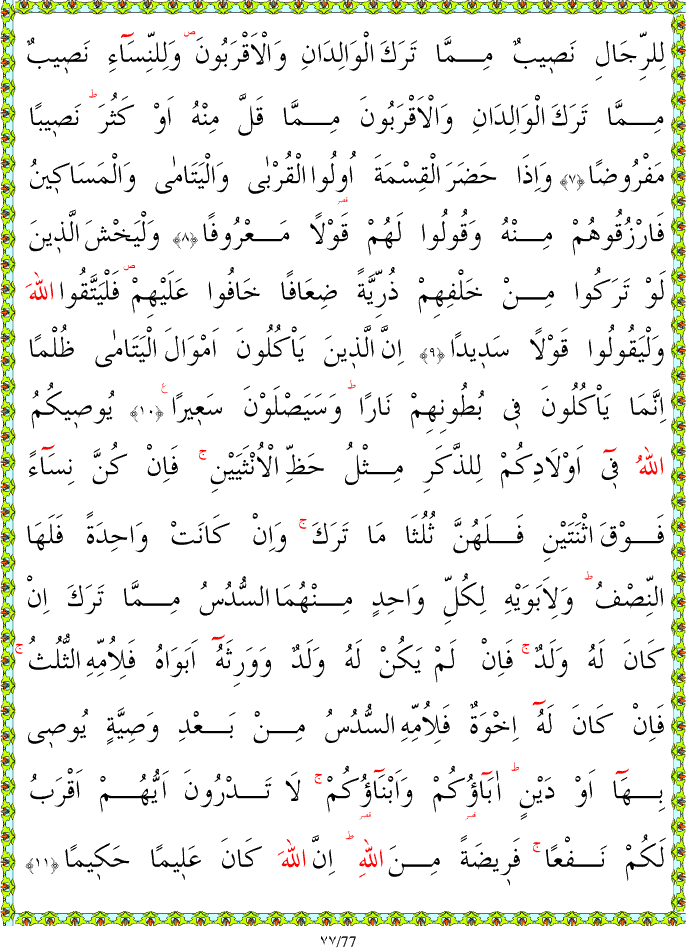 لِلرِّجَالِ نَصٖيبٌ مِمَّا تَرَكَ الْوَالِدَانِ وَالْاَقْرَبُونَۖ وَلِلنِّسَٓاءِ نَصٖيبٌ
مِمَّا تَرَكَ الْوَالِدَانِ وَالْاَقْرَبُونَ مِمَّا قَلَّ مِنْهُ اَوْ كَثُرَؕ نَصٖيبًا
مَفْرُوضًا ﴿٧﴾ وَاِذَا حَضَرَ الْقِسْمَةَ اُولُوا الْقُرْبٰى وَالْيَتَامٰى وَالْمَسَاكٖينُ
فَارْزُقُوهُمْ مِنْهُ وَقُولُوا لَهُمْ قَوْلًا مَعْرُوفًا ﴿٨﴾ وَلْيَخْشَ الَّذٖينَ
لَوْ تَرَكُوا مِنْ خَلْفِهِمْ ذُرِّيَّةً ضِعَافًا خَافُوا عَلَيْهِمْۖ فَلْيَتَّقُوا اللّٰهَ
وَلْيَقُولُوا قَوْلًا سَدٖيدًا ﴿٩﴾ اِنَّ الَّذٖينَ يَاْكُلُونَ اَمْوَالَ الْيَتَامٰى ظُلْمًا
اِنَّمَا يَاْكُلُونَ فٖى بُطُونِهِمْ نَارًاؕ وَسَيَصْلَوْنَ سَعٖيرًاࣖ ﴿١٠﴾ يُوصٖيكُمُ
اللّٰهُ فٖٓى اَوْلَادِكُمْ لِلذَّكَرِ مِثْلُ حَظِّ الْاُنْثَيَيْنِۚ فَاِنْ كُنَّ نِسَٓاءً
فَوْقَ اثْنَتَيْنِ فَلَهُنَّ ثُلُثَا مَا تَرَكَۚ وَاِنْ كَانَتْ وَاحِدَةً فَلَهَا
النِّصْفُؕ وَلِاَبَوَيْهِ لِكُلِّ وَاحِدٍ مِنْهُمَا السُّدُسُ مِمَّا تَرَكَ اِنْ
كَانَ لَهُ وَلَدٌۚ فَاِنْ لَمْ يَكُنْ لَهُ وَلَدٌ وَوَرِثَهُٓ اَبَوَاهُ فَلِاُمِّهِ الثُّلُثُۚ
فَاِنْ كَانَ لَهُٓ اِخْوَةٌ فَلِاُمِّهِ السُّدُسُ مِنْ بَعْدِ وَصِيَّةٍ يُوصٖى
بِهَٓا اَوْ دَيْنٍؕ اٰبَٓاؤُكُمْ وَاَبْنَٓاؤُكُمْۚ لَا تَدْرُونَ اَيُّهُمْ اَقْرَبُ
لَكُمْ نَفْعًاۚ فَرٖيضَةً مِنَ اللّٰهِؕ اِنَّ اللّٰهَ كَانَ عَلٖيمًا حَكٖيمًا ﴿١١﴾
٧٧/77